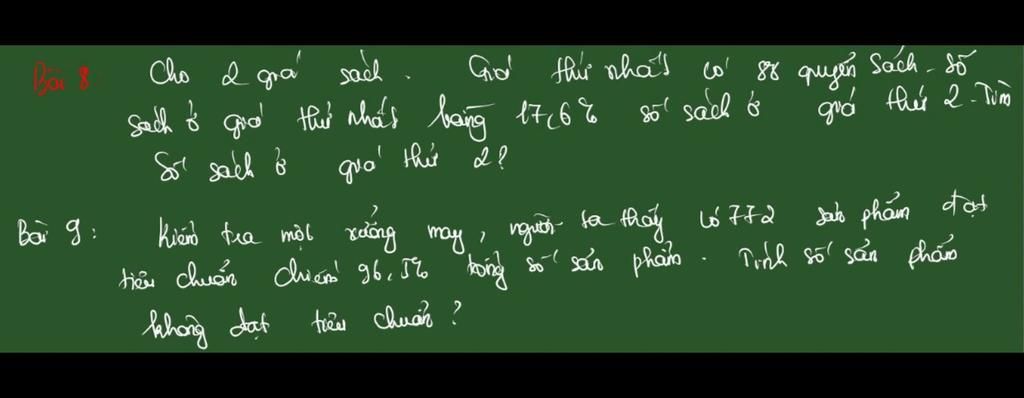 Bài 8 Cho 2 giá sách. Giá thứ nhất có 88 quyển sách. Số
sách ở giá thứ nhất bằng 17,6% số sách ở giá thứ 2. Tìm
Số sách ở giá thứ 2?
Bài 9: Kiểm tra một xưởng may, người ta thấy có 772 sản phẩm đạt
tiêu chuẩn chiếm 96,5% tổng số sản phẩm. Tính số sản phẩm
không đạt tiêu chuẩn?